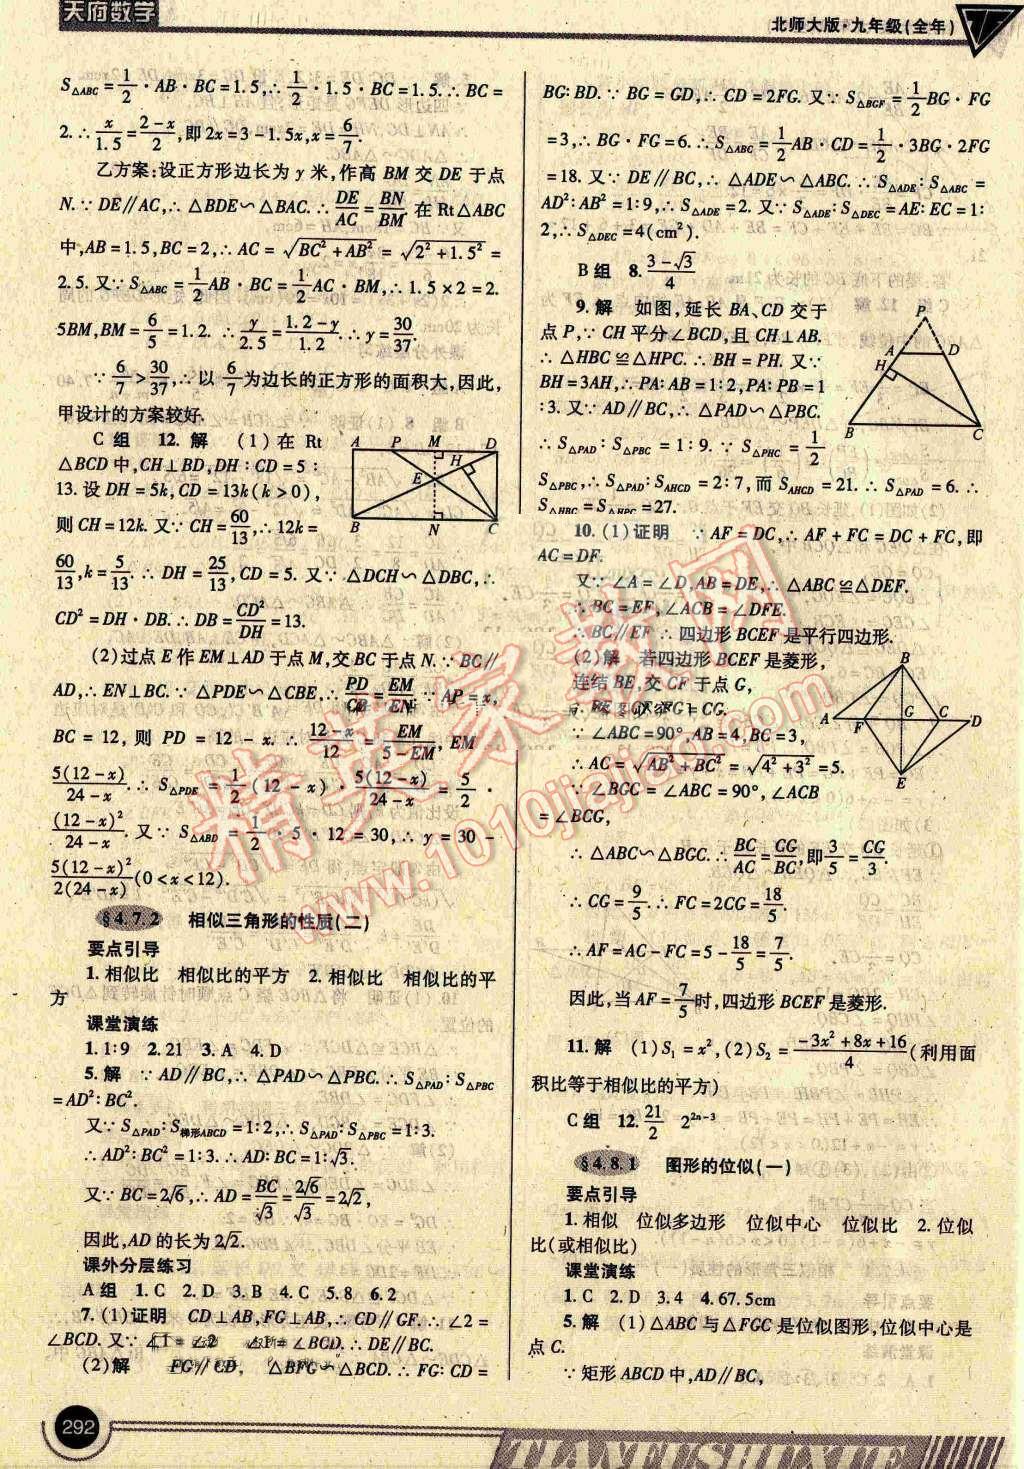 天府数学
北师大版·九年级(全年)
S△ABC=1/2·AB·BC=1.5,∴1/2·1.5·BC=1.5.∴BC=
2.∴x/1.5=(2-x)/2,即2x=3-1.5x,x=6/7.
乙方案:设正方形边长为y米,作高BM交DE于点
N.∵DE∥AC,∴△BDE∽△BAC.∴DE/AC=BN/BM.在Rt△ABC
中,AB=1.5,BC=2,∴AC=√(BC²+AB²)=√(2²+1.5²)=
2.5.又∵S△ABC=1/2AB·BC=1/2AC·BM,∴1.5×2=2.
5BM,BM=6/5=1.2.∴y/2.5=(1.2-y)/1.2.∴y=30/37.
∵6/7>30/37,∴以6/7为边长的正方形的面积大,因此,
甲设计的方案较好.
C组 12.解 (1)在Rt
△BCD中,CH⊥BD,DH:CD=5:
13.设DH=5k,CD=13k(k>0),
则CH=12k.又∵CH=60/13,∴12k=
60/13,k=5/13.∴DH=25/13,CD=5.又∵△DCH∽△DBC,∴
CD²=DH·DB.∴DB=CD²/DH=13.
(2)过点E作EM⊥AD于点M,交BC于点N.∵BC∥
AD,∴EN⊥BC.∵△PDE∽△CBE,∴PD/CB=EM/EN.∵AP=x,
BC=12,则PD=12-x.∴(12-x)/12=EM/(5-EM),EM
5(12-x)/(24-x).∴S△PDE=1/2(12-x)·5(12-x)/(24-x)=5/2·
(12-x)²/(24-x).又∵S△ABD=1/2·5·12=30,∴y=30-
5(12-x)²/2(24-x)(0<x<12).
A P M D H E B N C
§4.7.2 相似三角形的性质(二)
要点引导
1.相似比 相似比的平方 2.相似比 相似比的平
方
课堂演练
1.1:9 2.21 3.A 4.D
5.解 ∵AD∥BC,∴△PAD∽△PBC.∴S△PAD:S△PBC
=AD²:BC².
又∵S△PAD:S梯形ABCD=1:2,∴S△PAD:S△PBC=1:3.
∴AD²:BC²=1:3.∴AD:BC=1:√3.
又∵BC=2√6,∴AD=BC/√3=2√6/√3=2√2,
因此,AD的长为2√2.
课外分层练习
A组 1.C 2.D 3.B 4.C 5.8 6.2
7.(1)证明 CD⊥AB,FG⊥AB,∴CD∥GF.∴∠2=
∠BCD.又∵∠1=∠2 ∴∠1=∠BCD.∴DE∥BC.
(2)解 FG∥CD, △BFG∽△BCD.∴FG:CD=
BG:BD.∵BG=GD,∴CD=2FG.又∵S△BGF=1/2BG·FG
=3,∴BG·FG=6.∴S△ABC=1/2AB·CD=1/2·3BG·2FG
=18.又∵DE∥BC,∴△ADE∽△ABC.∴S△ADE:S△ABC=
AD²:AB²=1:9,∴S△ADE=2.又∵S△ADE:S△DEC=AE:EC=1:
2,∴S△DEC=4(cm²).
B组 8.(3-√3)/4
9.解 如图,延长BA、CD交于
点P,∵CH平分∠BCD,且CH⊥AB.
∴△HBC≌△HPC.∴BH=PH.又∵
BH=3AH,∴PA:AB=1:2,PA:PB=1
:3.又∵AD∥BC,∴△PAD∽△PBC.
∴S△PAD:S△PBC=1:9.∵S△PHC=1/2
S△PBC,∴S△PAD:SAHCD=2:7,而SAHCD=21.∴S△PAD=6.∴
S△HBC=S△HPC=27.
P A D H B C
10.(1)证明 ∵AF=DC,∴AF+FC=DC+FC,即
AC=DF.
又∵∠A=∠D,AB=DE,∴△ABC≌△DEF.
∴BC=EF,∠ACB=∠DFE.
∴BC∥EF ∴四边形BCEF是平行四边形.
(2)解 若四边形BCEF是菱形,
连结BE,交CF于点G,
FG=CG.
∵∠ABC=90°,AB=4,BC=3,
∴AC=√(AB²+BC²)=√(4²+3²)=5.
∵∠BGC=∠ABC=90°,∠ACB
=∠BCG,
∴△ABC∽△BGC.∴BC/AC=CG/BC,即3/5=CG/3.
∴CG=9/5.∴FC=2CG=18/5,
∴AF=AC-FC=5-18/5=7/5,
因此,当AF=7/5时,四边形BCEF是菱形.
B A F G C D E
11.解 (1)S₁=x²,(2)S₂=(-3x²+8x+16)/4(利用面
积比等于相似比的平方)
C组 12.21/2 2²ⁿ⁻³
§4.8.1 图形的位似(一)
要点引导
1.相似 位似多边形 位似中心 位似比 2.位似
比(或相似比)
课堂演练
1.C 2.D 3.4 4.67.5cm
5.解 (1)△ABC与△FGC是位似图形,位似中心是
点C.
∵矩形ABCD中,AD∥BC,
精英家教网
www.1010jiajiao.com
292
TIANFUSHUXUE